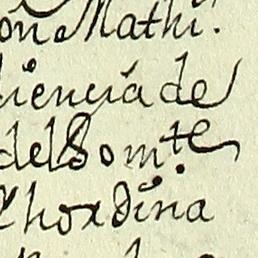 on Mathi.
iencia de
del Som.te
hordina